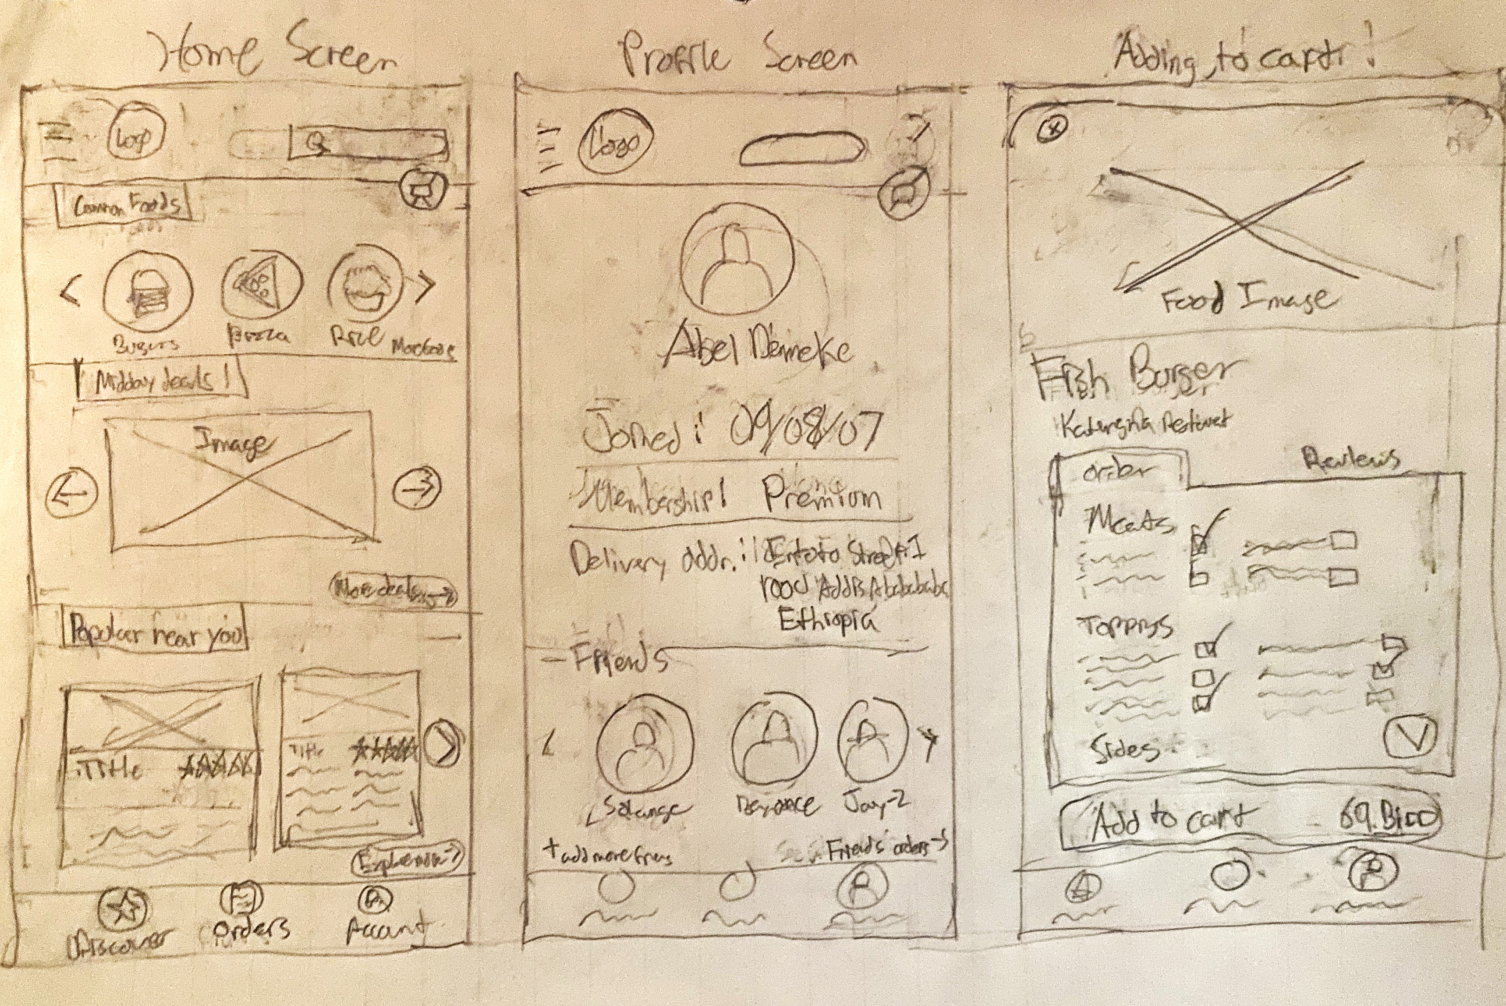 Home Screen
Logo
Common Foods
Burgers
Pizza
Rice
Midday deals!
Image
More deals
Popular near you
Title
Title
Explore more
Discover
Orders
Account
Profile Screen
Logo
Abel Demeke
Joined: 09/08/07
Membership: Premium
Delivery addr.: Entoto Street #1
road Addis Abababababa
Ethiopia
Friends
Solange
Beyonce
Jay-Z
+ add more
Friends' orders
Adding to cart!
Food Image
Fish Burger
order
Reviews
Meats
Toppings
Sides
Add to cart 69.Birr